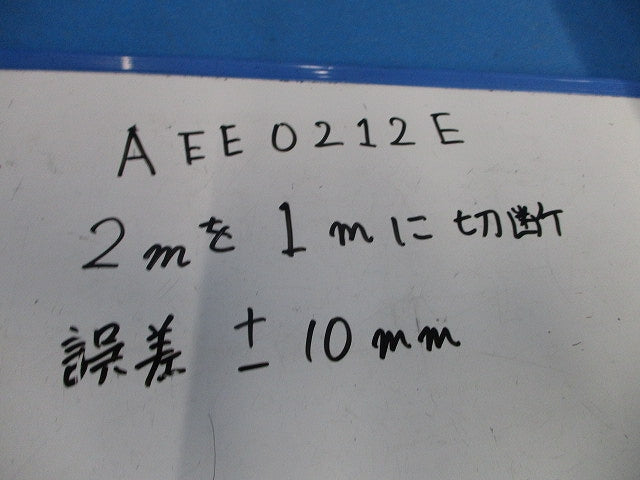 AEE0212E
2mを1mに切断
誤差±10mm